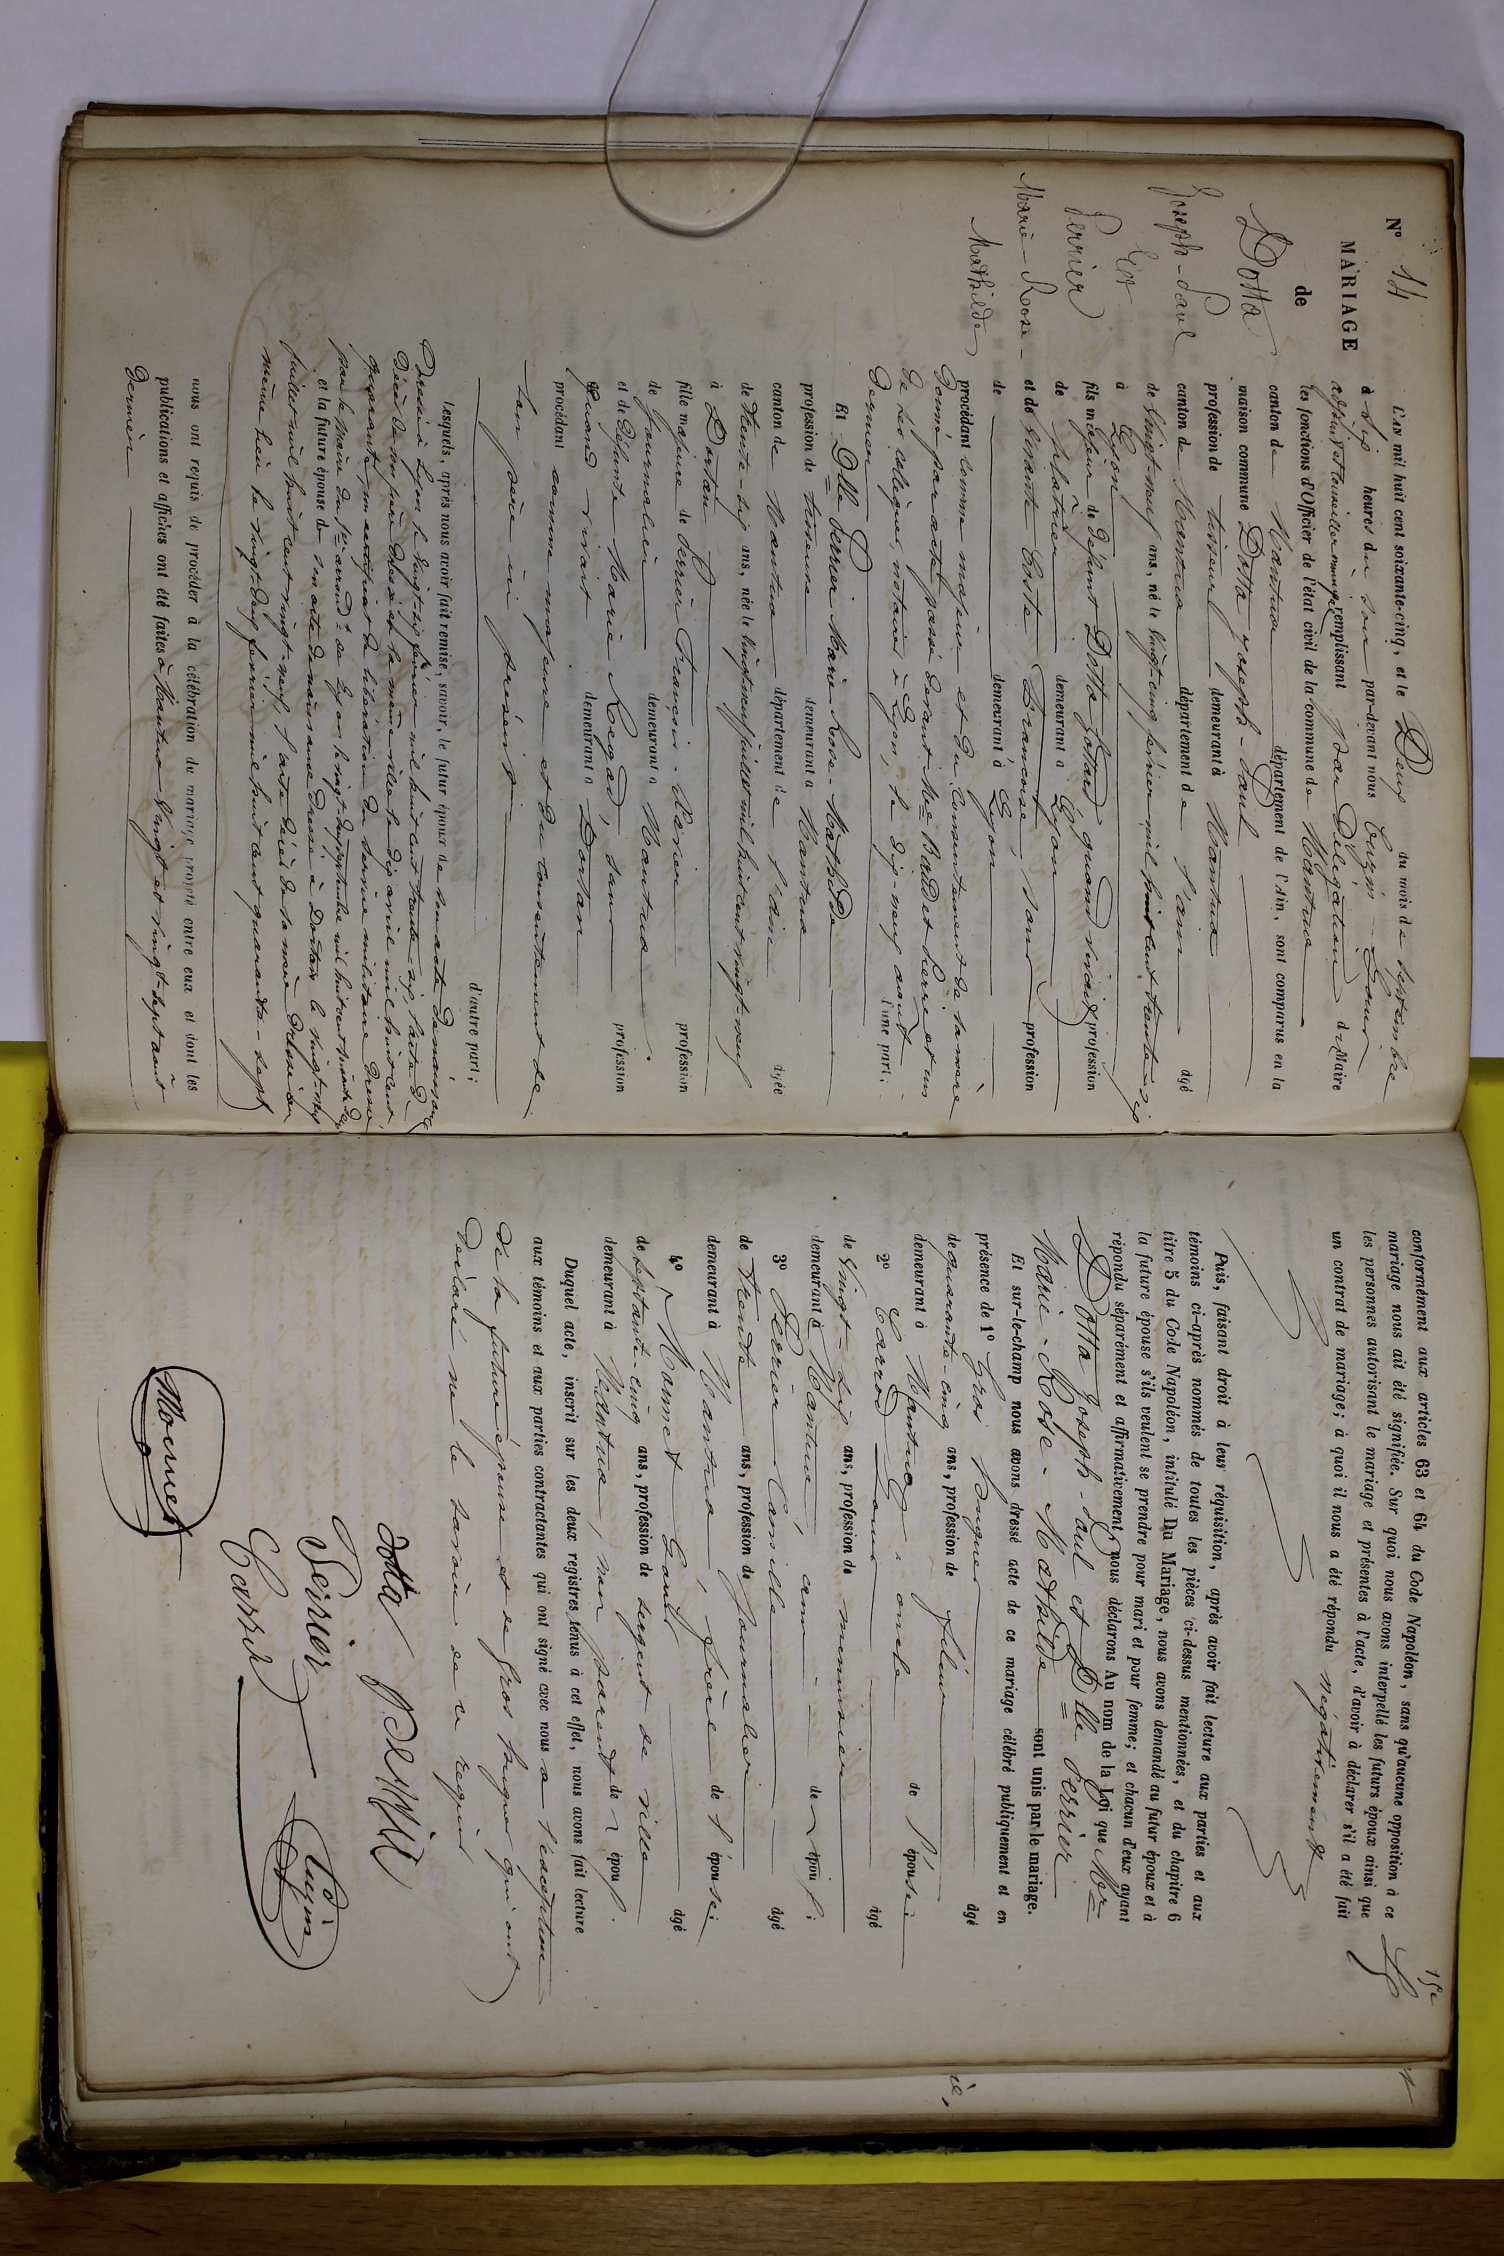 N° 14
MARIAGE
de
Dotta
Joseph-Paul
Et
Perrier
Marie-Rose-
Mathilde
L'AN mil huit cent soixante-cinq, et le Deux du mois de septembre
à six heures du soir par-devant nous
conseiller municipal remplissant par Délégation du Maire
les fonctions d'Officier de l'état civil de la commune de Nantua
canton de Nantua département de l'Ain, sont comparus en la
maison commune Dotta Joseph-Paul
profession de tisseur demeurant à Nantua âgé
canton de Nantua département de l'ain
de vingt-neuf ans, né le vingt-cinq février mil huit cent trente-six
à Lyon
fils majeur de défunt Dotta quand vivait profession
de plâtrier demeurant à Lyon
et de vivante sans profession
de demeurant à Lyon
procédant comme majeur et du consentement de sa mère
donné par acte passé devant Me et un
de ses collègues, notaires à Lyon, le dix-neuf août
dernier d'une part;
Et Dlle Perrier Marie-Rose-Mathilde
profession de tisseuse demeurant à Nantua
canton de Nantua département de l'ain âgée
de trente-six ans, née le vingt-neuf juillet mil huit cent vingt-neuf
à Dortan
fille majeure de Perrier François-Xavier profession
de journalier demeurant à Nantua
et de défunte Marie Regad, sans profession
quand vivait demeurant à Dortan
procédant comme majeure et du consentement de
son père ici présent
d'autre part;
Lesquels, après nous avoir fait remise, savoir, le futur époux de son acte de naissance
dressé à Lyon le vingt-six février mil huit cent trente-six, l'acte de
décès de son père dressé à la même ville le dix avril mil huit cent
quarante, un certificat de libération du service militaire dressé
par le Maire du arrondt de Lyon le vingt-deux septembre mil huit cent
et la future épouse de son acte de naissance dressé à Dortan le vingt-neuf
juillet mil huit cent vingt-neuf, l'acte de décès de sa mère dressé au
même lieu le vingt-deux février mil huit cent quarante-sept
nous ont requis de procéder à la célébration du mariage projeté entre eux et dont les
publications et affiches ont été faites à Nantua vingt et vingt-sept août
dernier
15e
conformément aux articles 63 et 64 du Code Napoléon, sans qu'aucune opposition à ce
mariage nous ait été signifiée. Sur quoi nous avons interpellé les futurs époux ainsi que
les personnes autorisant le mariage et présentes à l'acte, d'avoir à déclarer s'il a été fait
un contrat de mariage; à quoi il nous a été répondu négativement
Puis, faisant droit à leur réquisition, après avoir fait lecture aux parties et aux
témoins ci-après nommés de toutes les pièces ci-dessus mentionnées, et du chapitre 6
titre 5 du Code Napoléon, intitulé Du Mariage, nous avons demandé au futur époux et à
la future épouse s'ils veulent se prendre pour mari et pour femme; et chacun d'eux ayant
répondu séparément et affirmativement, nous déclarons Au nom de la Loi que Mr
Dotta Joseph-Paul et Dlle Perrier
Marie-Rose-Mathilde sont unis par le mariage.
Et sur-le-champ nous avons dressé acte de ce mariage célébré publiquement et en
présence de 1° Gros Hugues âgé
de quarante-cinq ans, profession de fileur
demeurant à Nantua, oncle de l'épouse;
2° Carrod âgé
de vingt-six ans, profession de menuisier
demeurant à Nantua, ami de époux;
3° Perrier Camille âgé
de trente ans, profession de journalier
demeurant à Nantua, frère de l'épouse;
4° Mornet âgé
de septante-cinq ans, profession de sergent de ville
demeurant à Nantua, non parent de époux.
Duquel acte, inscrit sur les deux registres tenus à cet effet, nous avons fait lecture
aux témoins et aux parties contractantes qui ont signé avec nous à l'exception
de la future épouse et de Gros Hugues qui ont
déclaré ne le savoir de ce requis
dotta
Perrier
Mornet